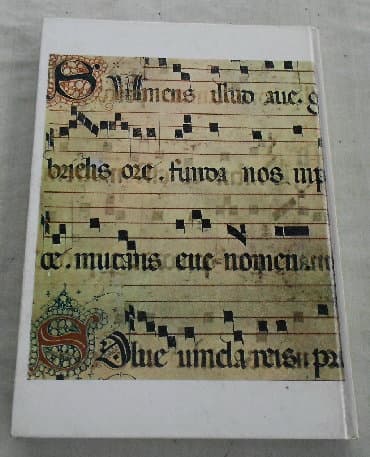 Sumens illud aue. g
brielis ore. funda nos in p
ce. mutans eue nomen
Solue uincla reis. pr